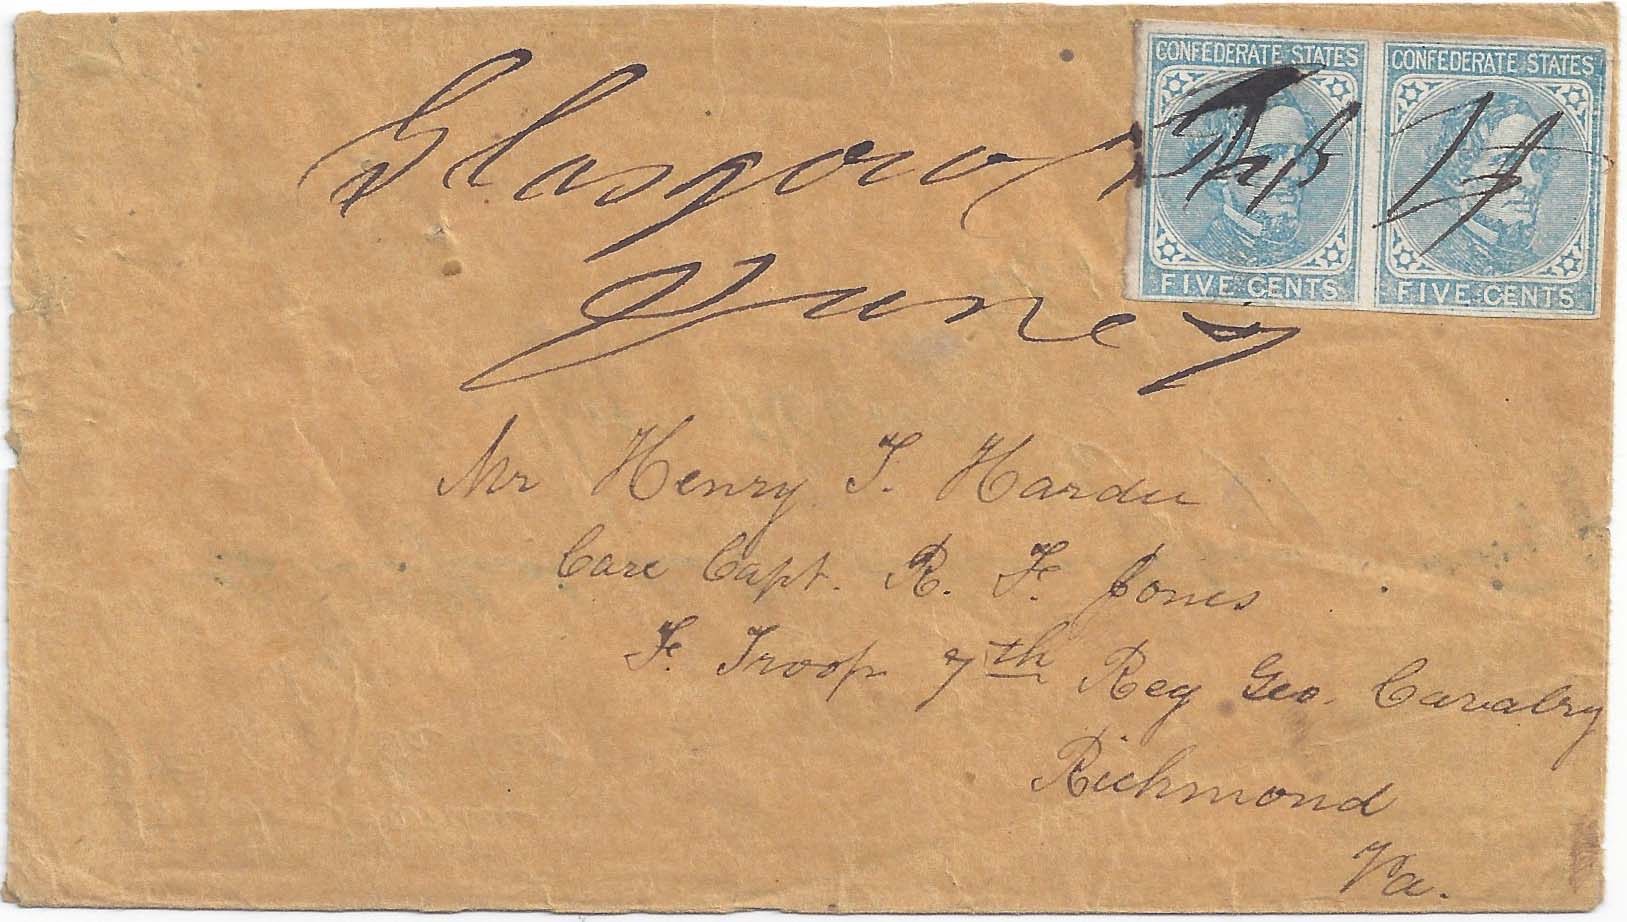 CONFEDERATE STATES CONFEDERATE STATES
FIVE CENTS FIVE CENTS
Glasgow
June 7
Mr Henry T. Hardee
Care Capt. R. F. Jones
F. Troop 7th Reg Geo. Cavalry
Richmond
Va.